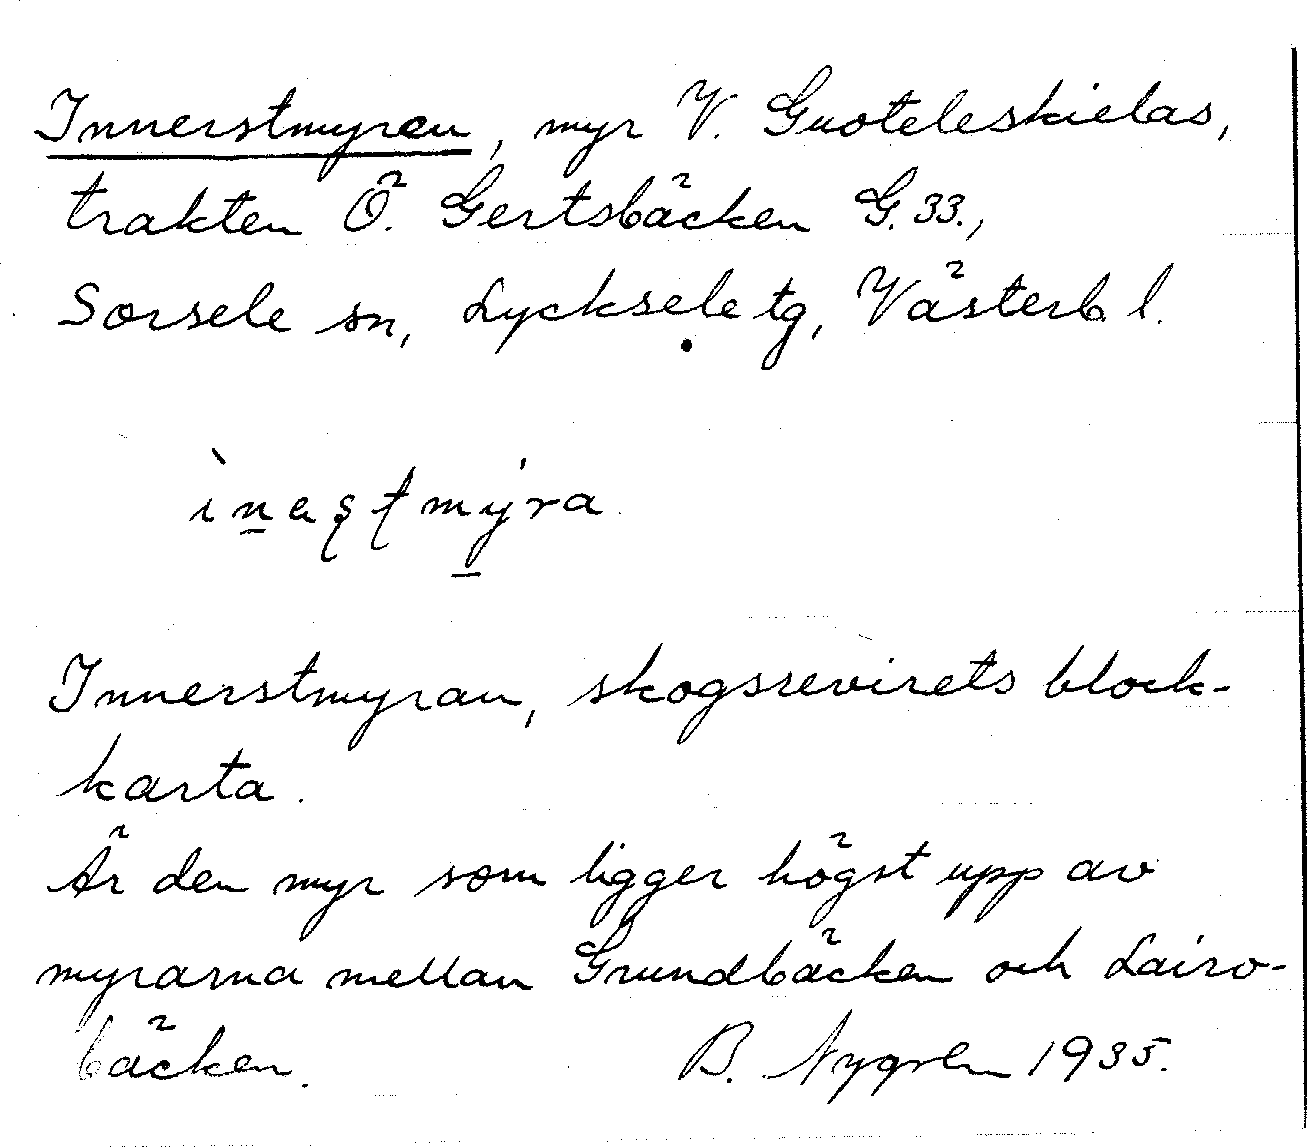 Innerstmyren, myr V. Guoteleskielas,
trakten Ö. Gertsbäcken G. 33.,
Sorsele sn, Lycksele tg, Västerb l.
ìn̲aşţmý̲ra
Innerstmyran, skogsrevirets block-
karta.
Är den myr som ligger högst upp av
myrarna mellan Grundbäcken och Lairo-
bäcken. B. Nygren 1935.